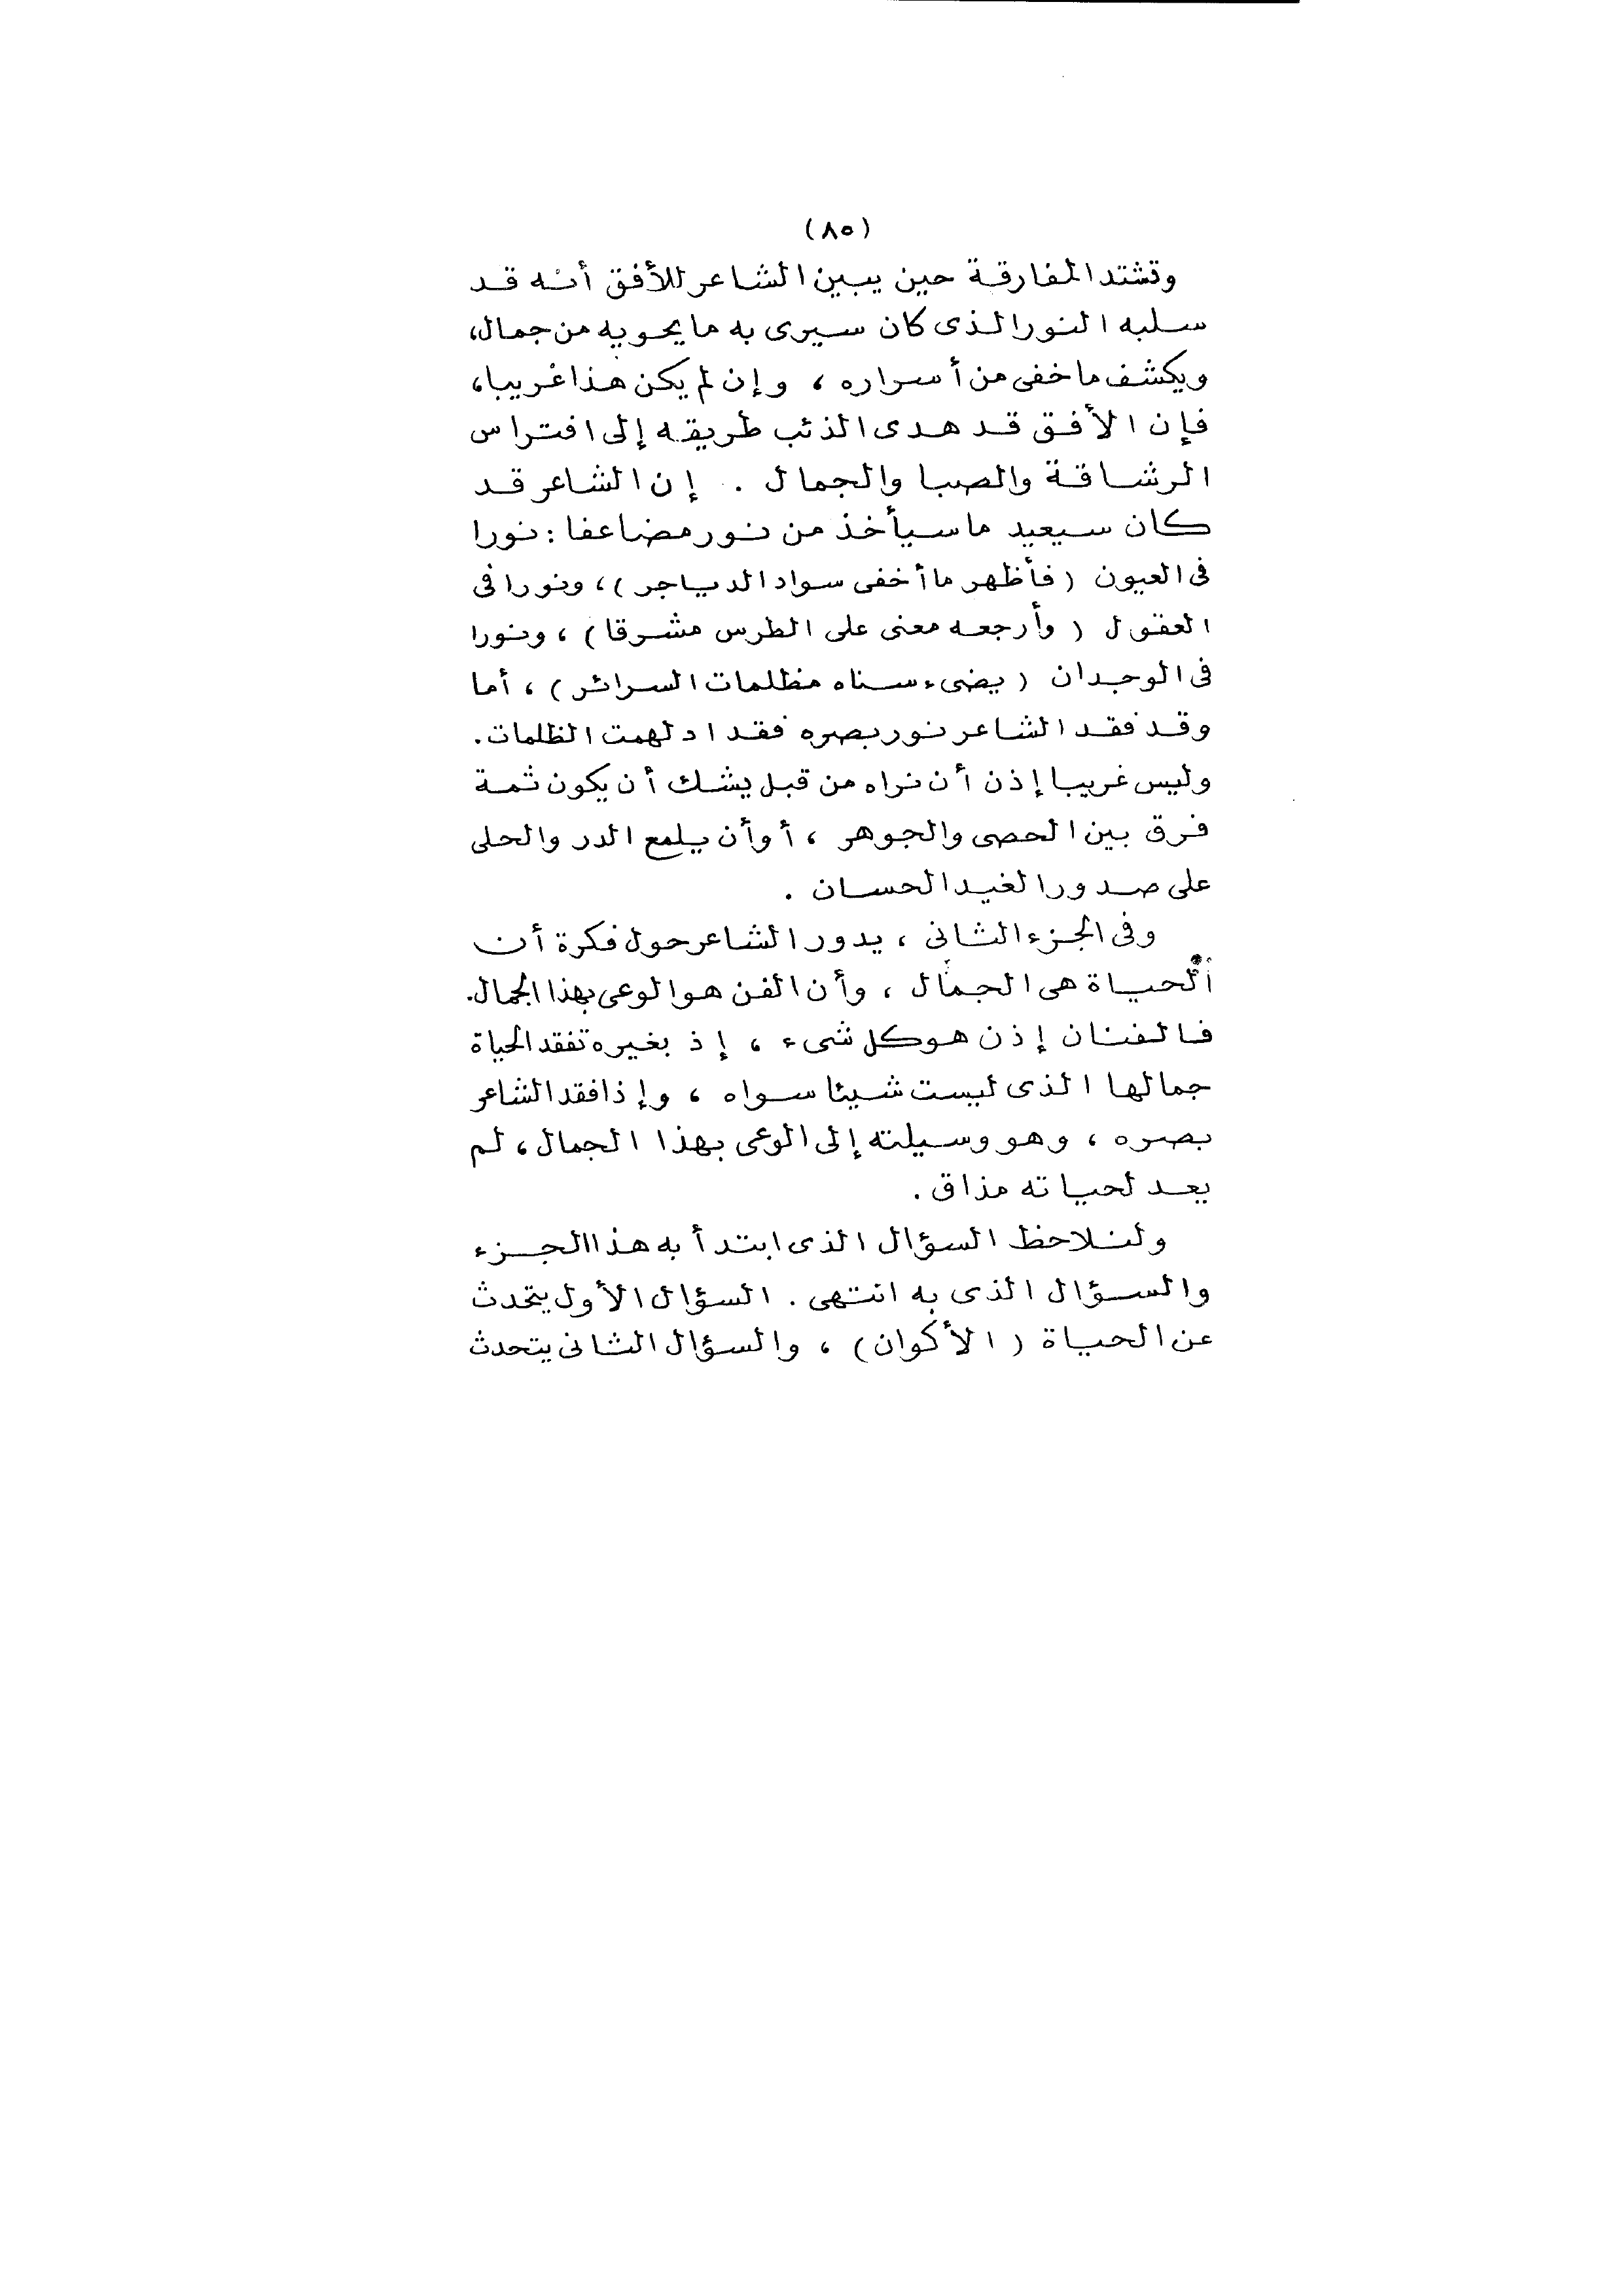 (٨٥)
وتشتد المفارقة حين يبين الشاعر للأفق أنه قد
سلبه النور الذى كان سيرى به ما يحويه من جمال،
ويكشف ما خفى من أسراره ، وإن لم يكن هذا غريبا،
فإن الأفق قد هدى الذئب طريقه إلى افتراس
الرشاقة والصبا والجمال . إن الشاعر قد
كان سيعيد ما سيأخذ من نور مضاعفا : نورا
فى العيون ( فأظهر ما أخفى سواد الدياجر ) ، ونورا فى
العقول ( وأرجعه معنى على الطرس مشرقا ) ، ونورا
فى الوجدان ( يضىء سناه مظلمات السرائر ) ، أما
وقد فقد الشاعر نور بصره فقد ادلهمت الظلمات .
وليس غريبا إذن أن نراه من قبل يشك أن يكون ثمة
فرق بين الحصى والجوهر ، أو أن يلمع الدر والحلى
على صدور الغيد الحسان .
وفى الجزء الثانى ، يدور الشاعر حول فكرة أن
الحياة هى الجمال ، وأن الفن هو الوعى بهذا الجمال.
فالفنان إذن هو كل شىء ، إذ بغيره تفقد الحياة
جمالها الذى ليست شيئا سواه ، وإذا فقد الشاعر
بصره ، وهو وسيلته إلى الوعى بهذا الجمال ، لم
يعد لحياته مذاق .
ولنلاحظ السؤال الذى ابتدأ به هذا الجزء
والسؤال الذى به انتهى . السؤال الأول يتحدث
عن الحياة ( الأكوان ) ، والسؤال الثانى يتحدث